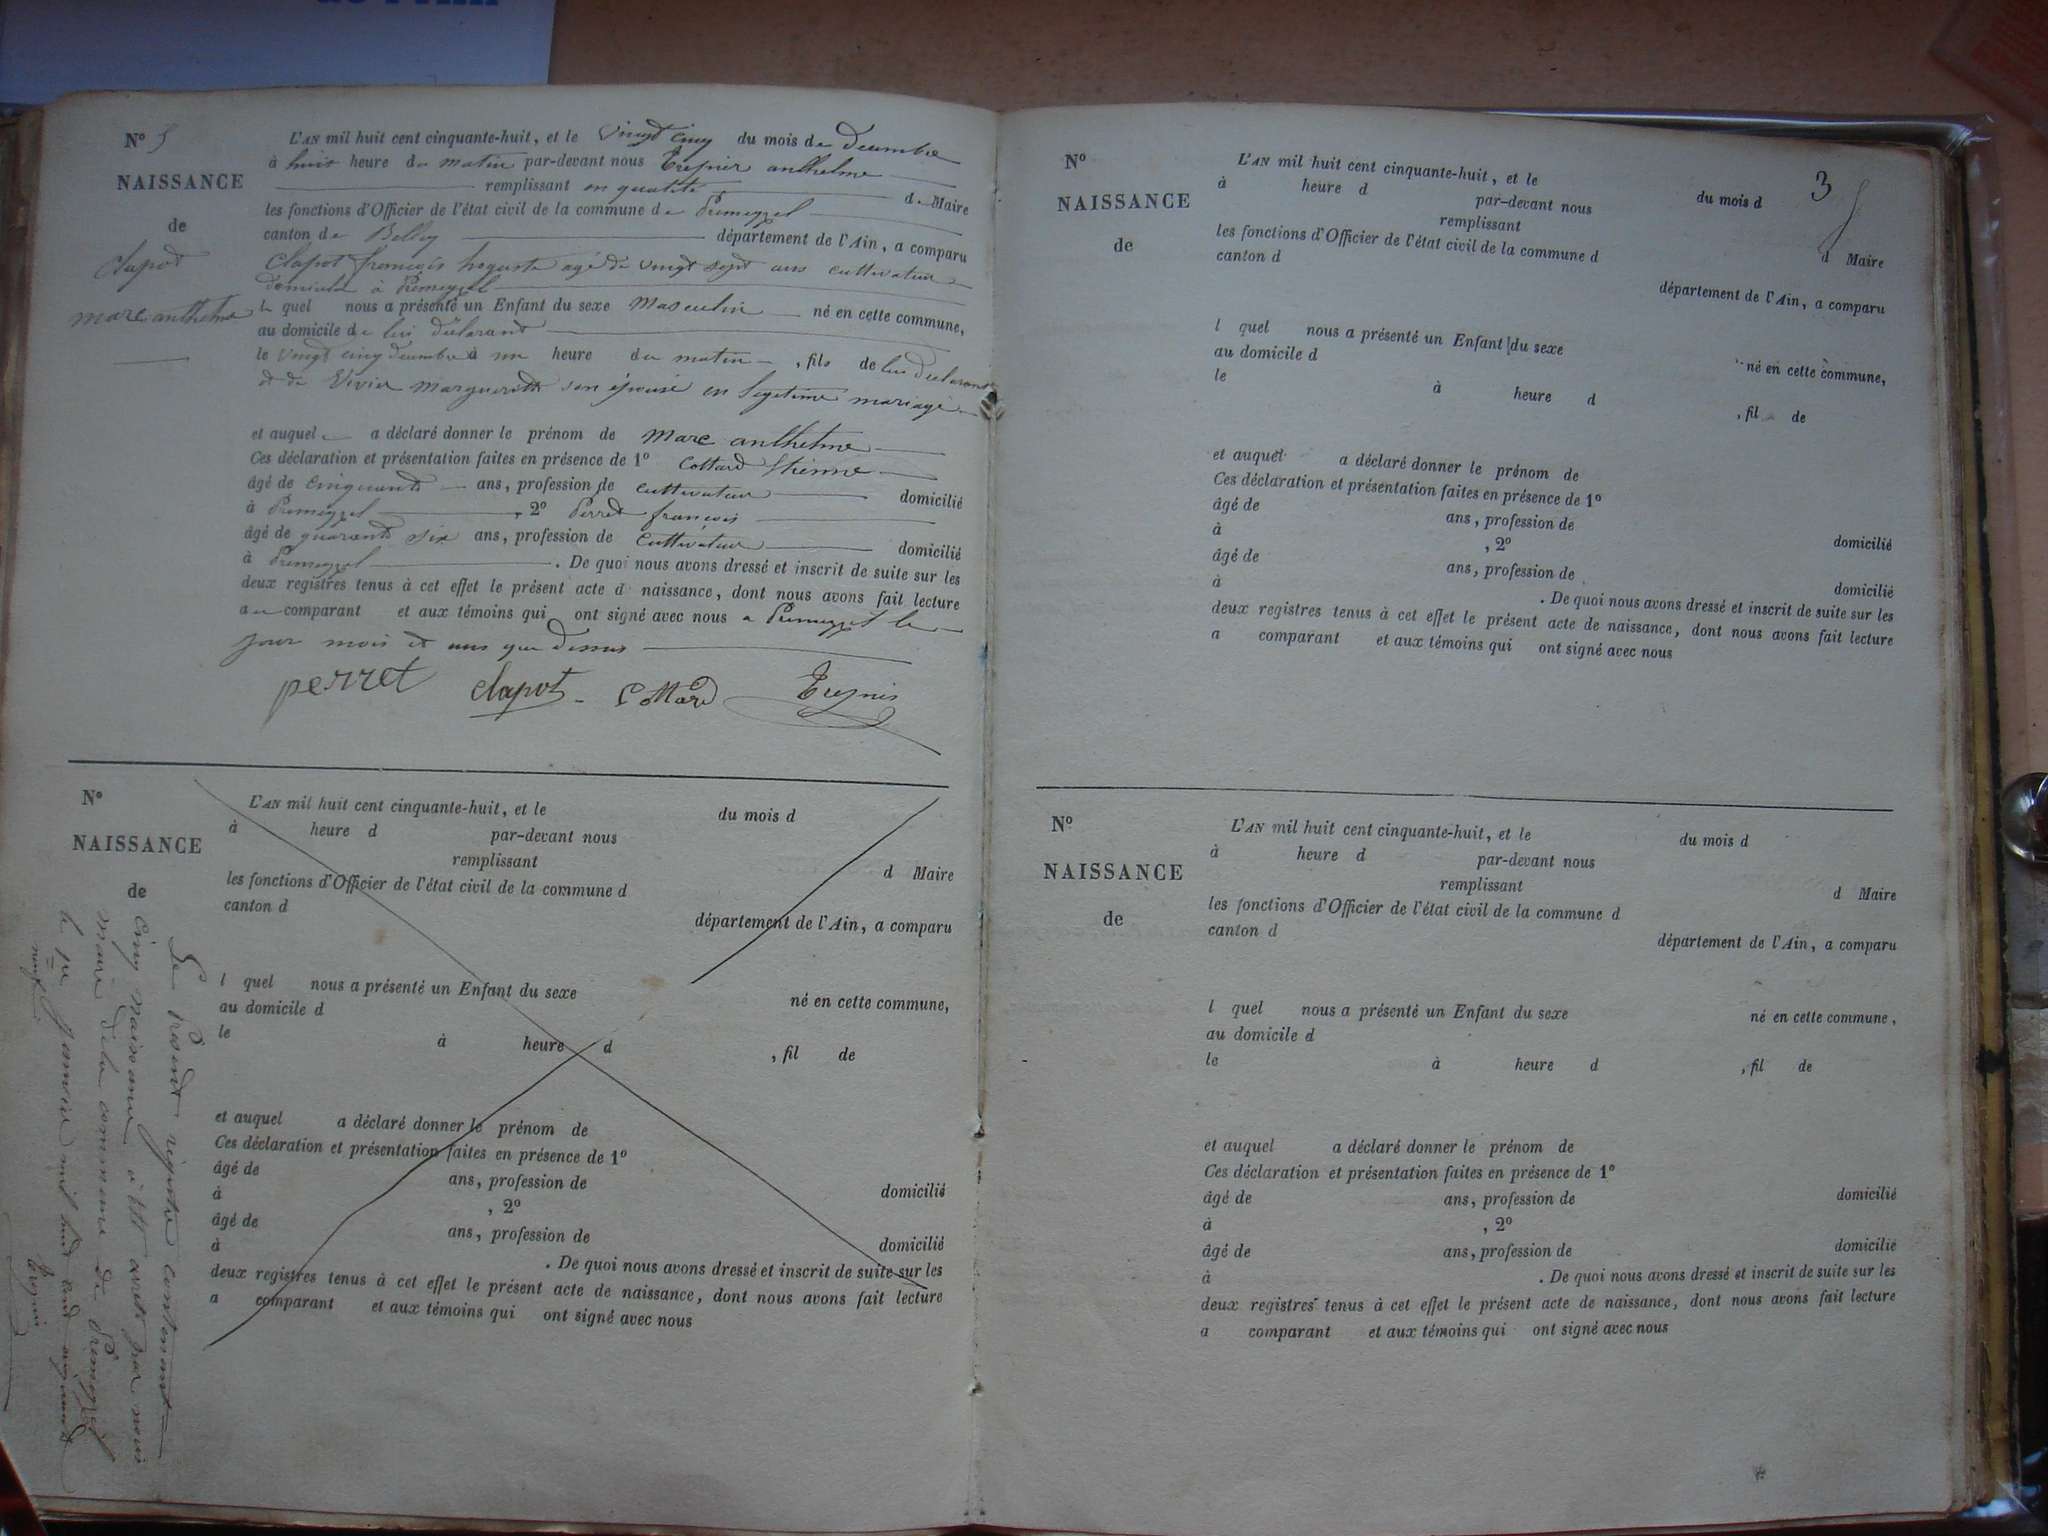 Nº 5
NAISSANCE
de
Clapot
marc anthelme
L'AN mil huit cent cinquante-huit, et le vingt cinq du mois de decembre
à huit heure du matin par-devant nous Trepnier anthelme
remplissant en qualité de Maire
les fonctions d'Officier de l'état civil de la commune de Premeyzel
canton de Belley département de l'Ain, a comparu
Clapot françois agé de vingt sept ans cultivateur
domicilié à Premeyzel
le quel nous a présenté un Enfant du sexe masculin né en cette commune,
au domicile de lui déclarant
le vingt cinq decembre à une heure du matin, fils de lui declarant
et de Vivier marguerite son épouse en legitime mariage
et auquel a déclaré donner le prénom de marc anthelme
Ces déclaration et présentation faites en présence de 1º Cottard Etienne
âgé de cinquante ans, profession de cultivateur domicilié
à Premeyzel, 2º Perret françois
âgé de quarante six ans, profession de cultivateur domicilié
à Premeyzel. De quoi nous avons dressé et inscrit de suite sur les
deux registres tenus à cet effet le présent acte d naissance, dont nous avons fait lecture
au comparant et aux témoins qui ont signé avec nous a Premeyzel le
jour mois et ans que dessus
perret clapot Cottard
Nº
NAISSANCE
de
L'AN mil huit cent cinquante-huit, et le du mois d
à heure d par-devant nous
remplissant d Maire
les fonctions d'Officier de l'état civil de la commune d
canton d département de l'Ain, a comparu
l quel nous a présenté un Enfant du sexe né en cette commune,
au domicile d
le à heure d , fil de
et auquel a déclaré donner le prénom de
Ces déclaration et présentation faites en présence de 1º
âgé de ans, profession de domicilié
à , 2º
âgé de ans, profession de domicilié
à . De quoi nous avons dressé et inscrit de suite sur les
deux registres tenus à cet effet le présent acte de naissance, dont nous avons fait lecture
a comparant et aux témoins qui ont signé avec nous
Le présent registre contenant
cinq naissance a été arrêté par nous
maire de la commune de Premeyzel
le 1er janvier mil huit cent cinquante
neuf
3
Nº
NAISSANCE
de
L'AN mil huit cent cinquante-huit, et le du mois d
à heure d par-devant nous
remplissant d Maire
les fonctions d'Officier de l'état civil de la commune d
canton d département de l'Ain, a comparu
l quel nous a présenté un Enfant du sexe né en cette commune,
au domicile d
le à heure d , fil de
et auquel a déclaré donner le prénom de
Ces déclaration et présentation faites en présence de 1º
âgé de ans, profession de domicilié
à , 2º
âgé de ans, profession de domicilié
à . De quoi nous avons dressé et inscrit de suite sur les
deux registres tenus à cet effet le présent acte de naissance, dont nous avons fait lecture
a comparant et aux témoins qui ont signé avec nous
Nº
NAISSANCE
de
L'AN mil huit cent cinquante-huit, et le du mois d
à heure d par-devant nous
remplissant d Maire
les fonctions d'Officier de l'état civil de la commune d
canton d département de l'Ain, a comparu
l quel nous a présenté un Enfant du sexe né en cette commune,
au domicile d
le à heure d , fil de
et auquel a déclaré donner le prénom de
Ces déclaration et présentation faites en présence de 1º
âgé de ans, profession de domicilié
à , 2º
âgé de ans, profession de domicilié
à . De quoi nous avons dressé et inscrit de suite sur les
deux registres tenus à cet effet le présent acte de naissance, dont nous avons fait lecture
a comparant et aux témoins qui ont signé avec nous